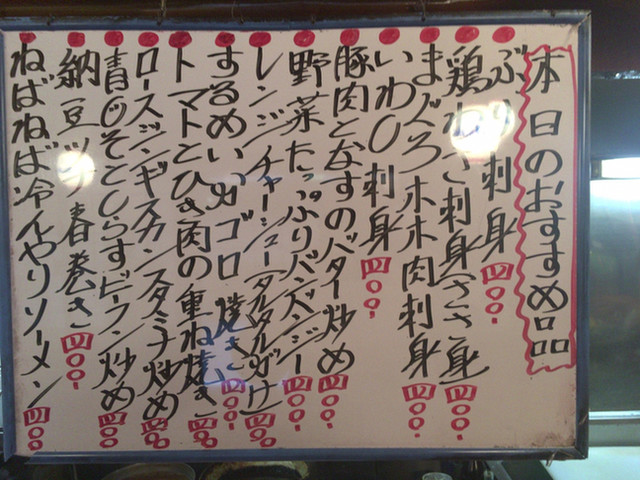 本日のおすすめ品
ぶり刺身四〇〇.
鶏わさ刺身(ささ身)四〇〇.
まぐろホホ肉刺身四〇〇.
いわし刺身四〇〇.
豚肉となすのバター炒め四〇〇.
野菜たっぷりバンバンジー四〇〇.
レンジチャーシュー(タルタルがけ)四〇〇.
するめいかゴロ焼き四〇〇.
トマトとひき肉の重ね焼き四〇〇.
ロースジンギスカンスタミナ炒め四〇〇.
青じそとしらすビーフン炒め四〇〇.
納豆ツナ春巻き四〇〇.
ねばねば冷んやりソーメン四〇〇.